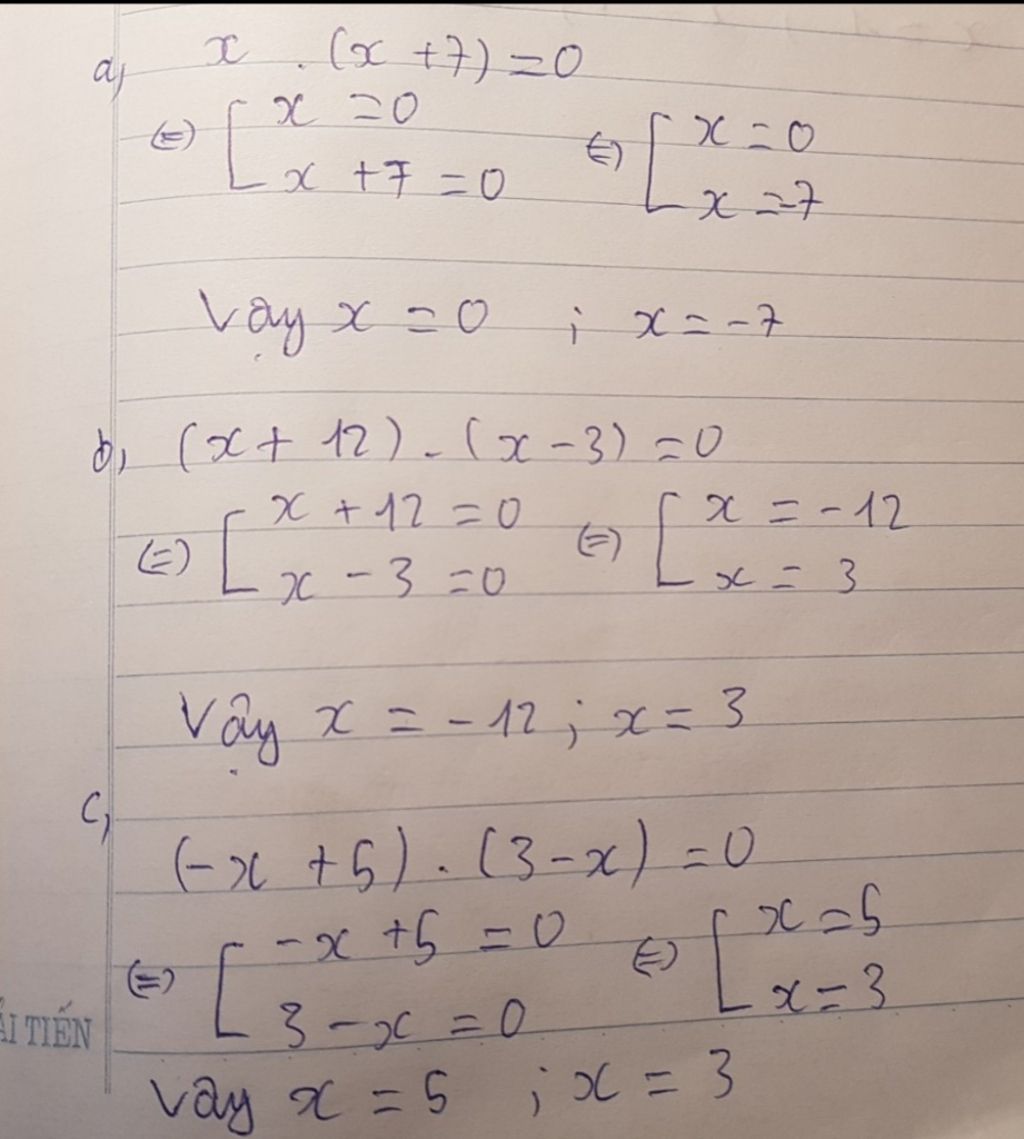 a, x . (x + 7) = 0
(=) [ x = 0 (=) [ x = 0
x + 7 = 0 x = -7
Vậy x = 0 ; x = -7
b, (x + 12) . (x - 3) = 0
(=) [ x + 12 = 0 (=) [ x = -12
x - 3 = 0 x = 3
Vậy x = -12 ; x = 3
c,
(-x + 5) . (3 - x) = 0
(=) [ -x + 5 = 0 (=) [ x = 5
3 - x = 0 x = 3
ẢI TIẾN
Vây x = 5 ; x = 3